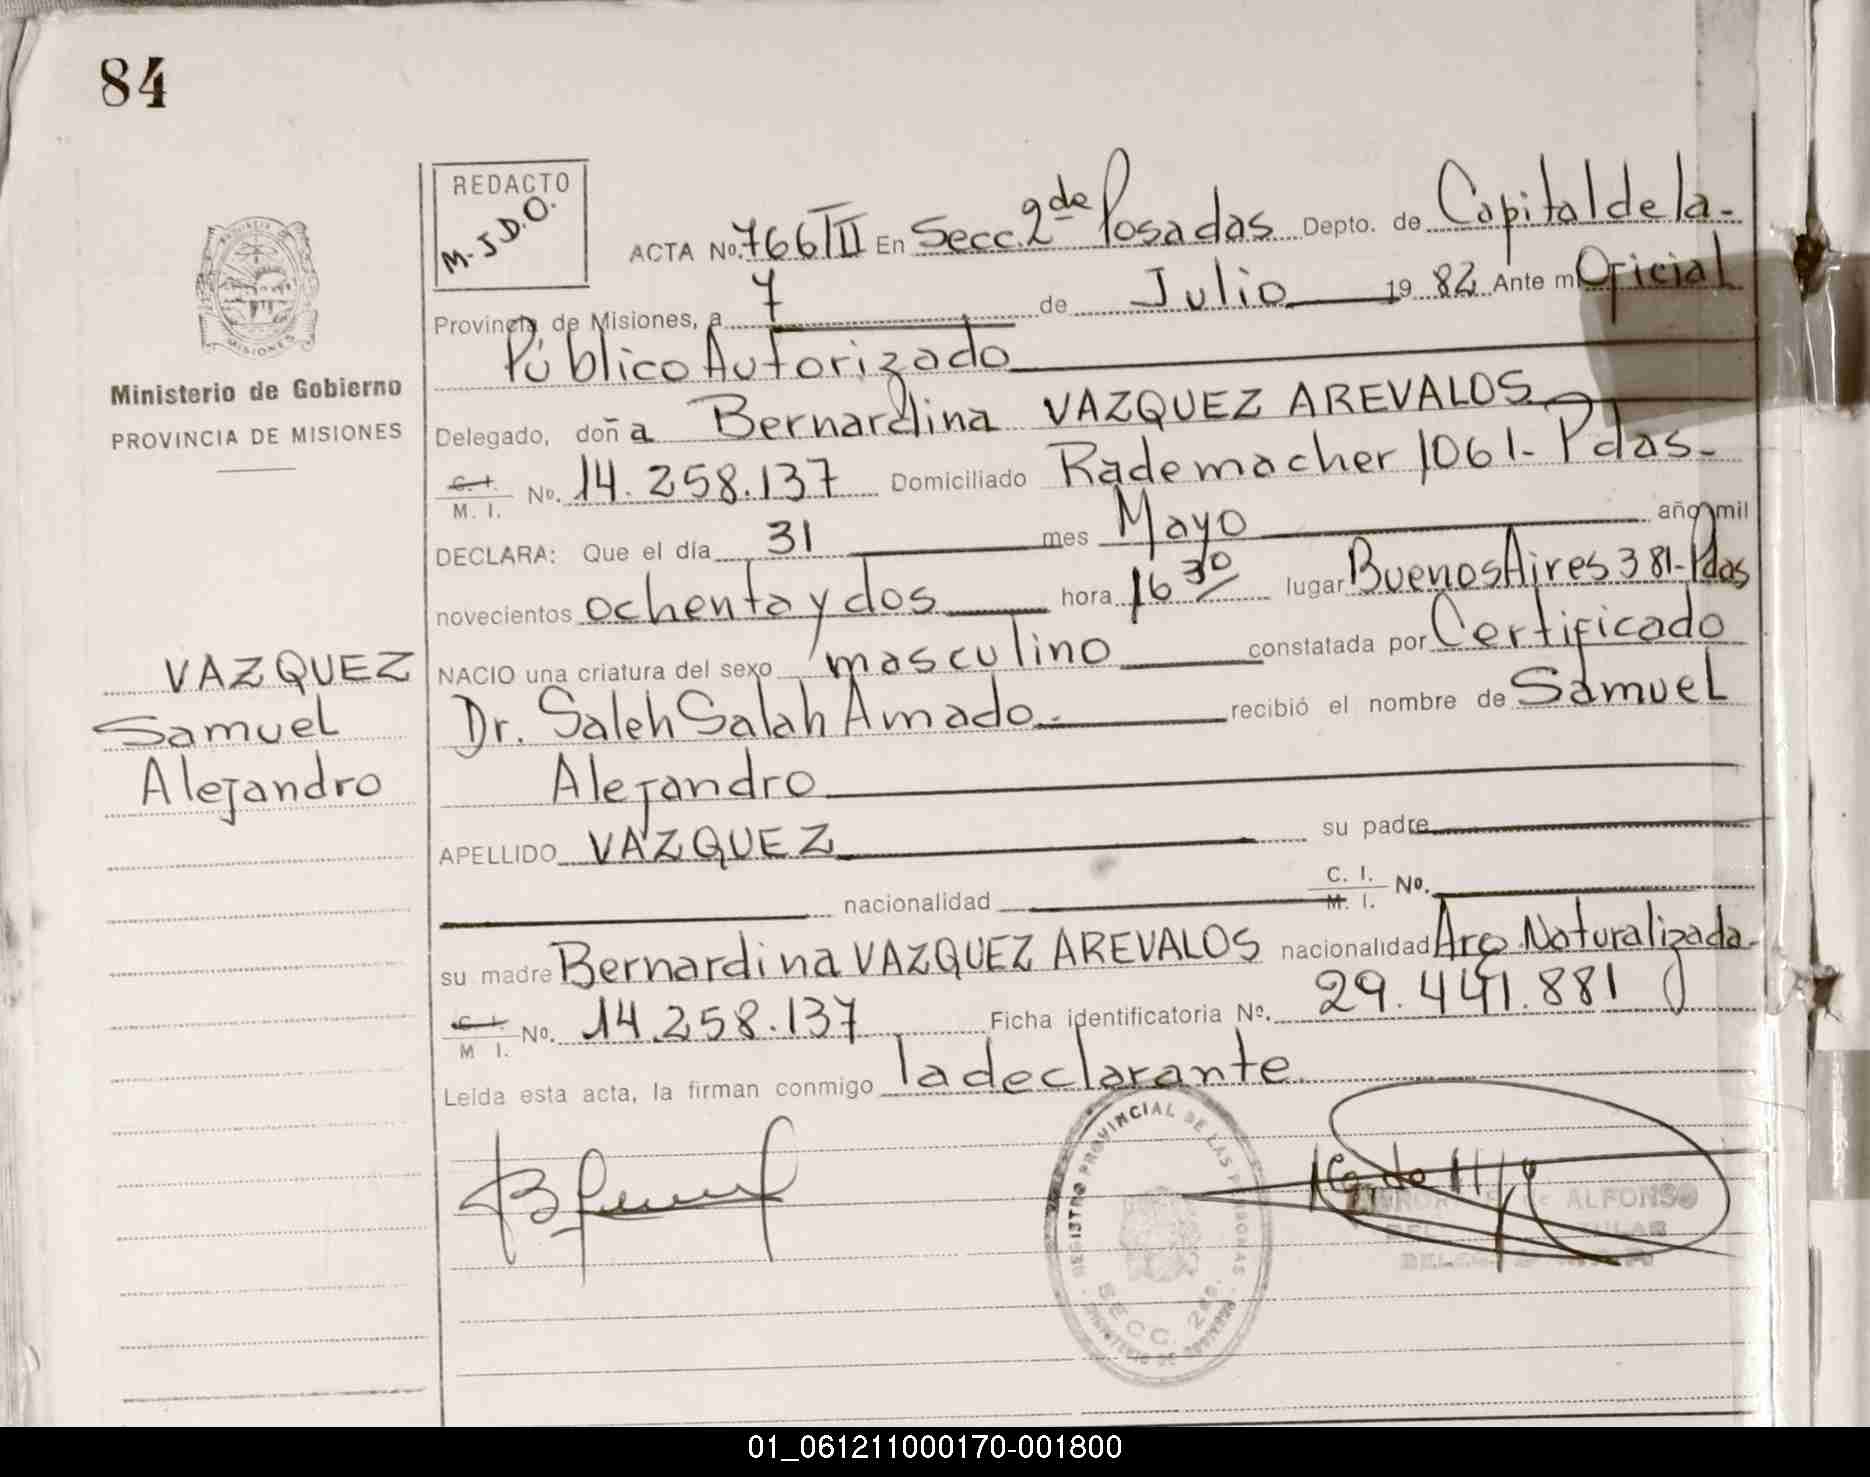 84
REDACTO
M.J.D.O.
ACTA No. 766/II En Secc. 2da de Posadas Depto. de Capital de la-
Provincia de Misiones, a 7 de Julio 1982 Ante mi Oficial
Público Autorizado
PROVINCIA
MISIONES
Ministerio de Gobierno
PROVINCIA DE MISIONES
Delegado, doña Bernardina VAZQUEZ AREVALOS
C.I. M. I. No. 14.258.137 Domiciliado Rademacher 1061- Pdas-
DECLARA: Que el día 31 mes Mayo año mil
novecientos ochenta y dos hora 16 30 lugar Buenos Aires 381-Pdas
NACIO una criatura del sexo masculino constatada por Certificado
Dr. Saleh Salah Amado.- recibió el nombre de Samuel
Alejandro
VAZQUEZ
Samuel
Alejandro
APELLIDO VAZQUEZ su padre
nacionalidad C. I. M. I. No.
su madre Bernardina VAZQUEZ AREVALOS nacionalidad Arg. Naturalizada-
C.I. M I. No. 14.258.137 Ficha identificatoria No. 29.441.881
Leída esta acta, la firman conmigo la declarante
REGISTRO PROVINCIAL DE LAS PERSONAS
SECC. 2da.
de ALFONSO
01_061211000170-001800